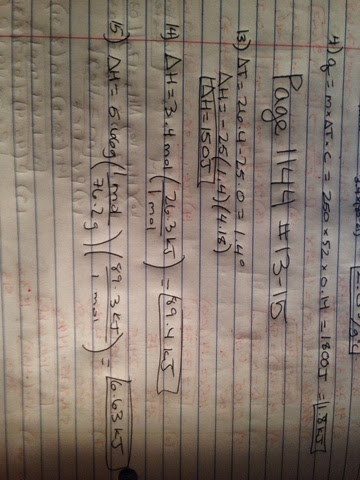 4) q = m×ΔT×C = 250 × 52 × 0.14 = 1800J = 1.8kJ
Page 1144 #13-15
13) ΔT = 26.4 - 25.0 = 1.4°
ΔH = -25(1.4)(4.18)
ΔH = 150J
14) ΔH = 3.4 mol (26.3 kJ / 1 mol) = 89.4 kJ
15) ΔH = 5.66g (1 mol / 76.2g) (89.3 kJ / 1 mol) = 6.63 kJ